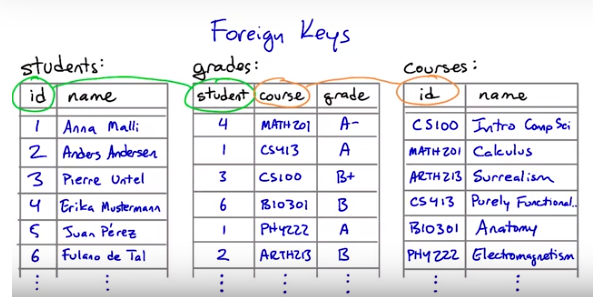 Foreign Keys
students:
id name
1 Anna Malli
2 Anders Andersen
3 Pierre Untel
4 Erika Mustermann
5 Juan Pérez
6 Fulano de Tal
grades:
student course grade
4 MATH201 A-
1 CS413 A
3 CS100 B+
6 BIO301 B
1 PHY222 A
2 ARTH213 B
courses:
id name
CS100 Intro Comp Sci
MATH201 Calculus
ARTH213 Surrealism
CS413 Purely Functional..
BIO301 Anatomy
PHY222 Electromagnetism